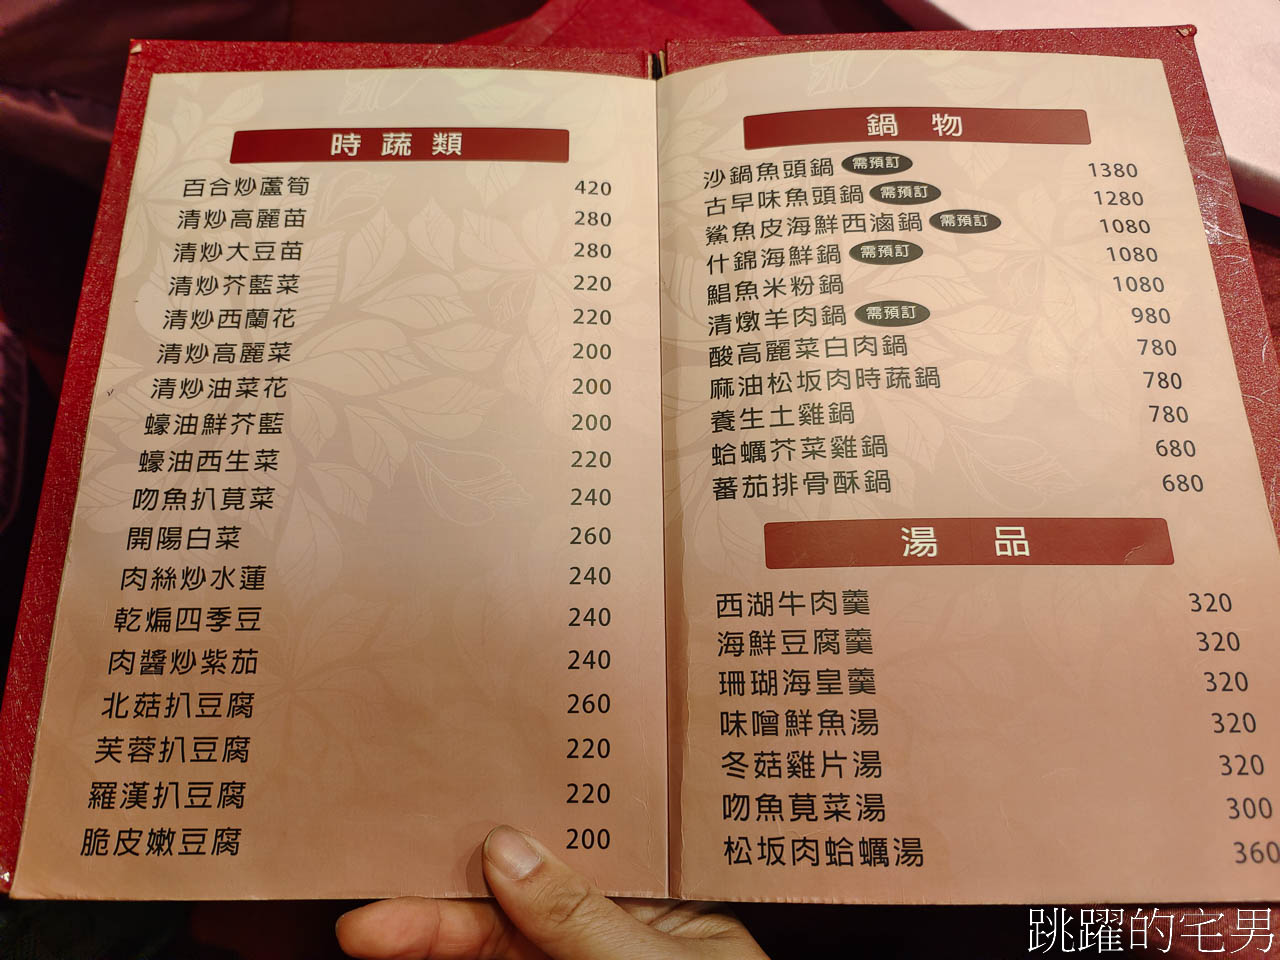 時蔬類
百合炒蘆筍 420
清炒高麗苗 280
清炒大豆苗 280
清炒芥藍菜 220
清炒西蘭花 220
清炒高麗菜 200
清炒油菜花 200
蠔油鮮芥藍 200
蠔油西生菜 220
吻魚扒莧菜 240
開陽白菜 260
肉絲炒水蓮 240
乾煸四季豆 240
肉醬炒紫茄 240
北菇扒豆腐 260
芙蓉扒豆腐 220
羅漢扒豆腐 220
脆皮嫩豆腐 200
鍋物
沙鍋魚頭鍋 需預訂 1380
古早味魚頭鍋 需預訂 1280
鯊魚皮海鮮西滷鍋 需預訂 1080
什錦海鮮鍋 需預訂 1080
鯧魚米粉鍋 1080
清燉羊肉鍋 需預訂 980
酸高麗菜白肉鍋 780
麻油松坂肉時蔬鍋 780
養生土雞鍋 780
蛤蠣芥菜雞鍋 680
蕃茄排骨酥鍋 680
湯品
西湖牛肉羹 320
海鮮豆腐羹 320
珊瑚海皇羹 320
味噌鮮魚湯 320
冬菇雞片湯 320
吻魚莧菜湯 300
松坂肉蛤蠣湯 360
跳躍的宅男